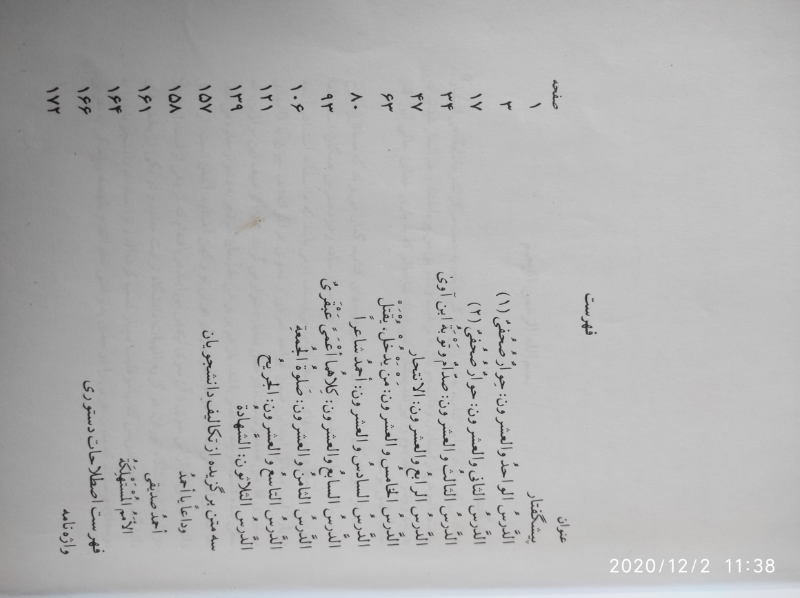 فهرست
عنوان صفحه
پیشگفتار ۱
الدَّرسُ الواحدُ والعشرون: حِوارٌ صُحُفیٌّ (۱) ۳
الدَّرسُ الثانی والعشرون: حوارٌ صُحُفیٌّ (۲) ۱۷
الدَّرسُ الثالثُ والعشرون: صدّامٌ و تَوْبَةُ ابن آوی ۳۴
الدَّرسُ الرابعُ والعشرون: الانتحار ۴۷
الدَّرسُ الخامسُ والعشرون: مَن یَدْخُلْ، یُقْتَلْ ۶۳
الدَّرسُ السادسُ والعشرون: أحمدُ شاعراً ۸۰
الدَّرسُ السابعُ والعشرون: کِلاهُما أعْمَیً عَبْقَریٌّ ۹۳
الدَّرسُ الثامنُ والعشرون: صَلوةُ الجُمعةِ ۱۰۶
الدَّرسُ التاسعُ والعشرون: الجَریحُ ۱۲۱
الدَّرسُ الثلاثون: الشَّهادةُ ۱۳۹
سه متن برگزیده از تکالیف دانشجویان ۱۵۷
وداعاً یا أحمدُ ۱۵۸
أحمدُ صدیقی ۱۶۱
الأُمَمُ المُسْتَهْلِکَةُ ۱۶۴
فهرست اصطلاحات دستوری ۱۶۶
واژه‌نامه ۱۷۲
2020/12/2 11:38